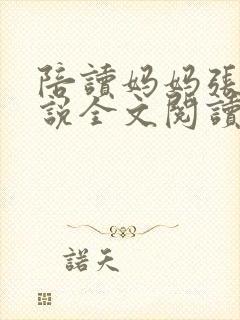 陪讀妈妈張
說全文閱讀
諾天